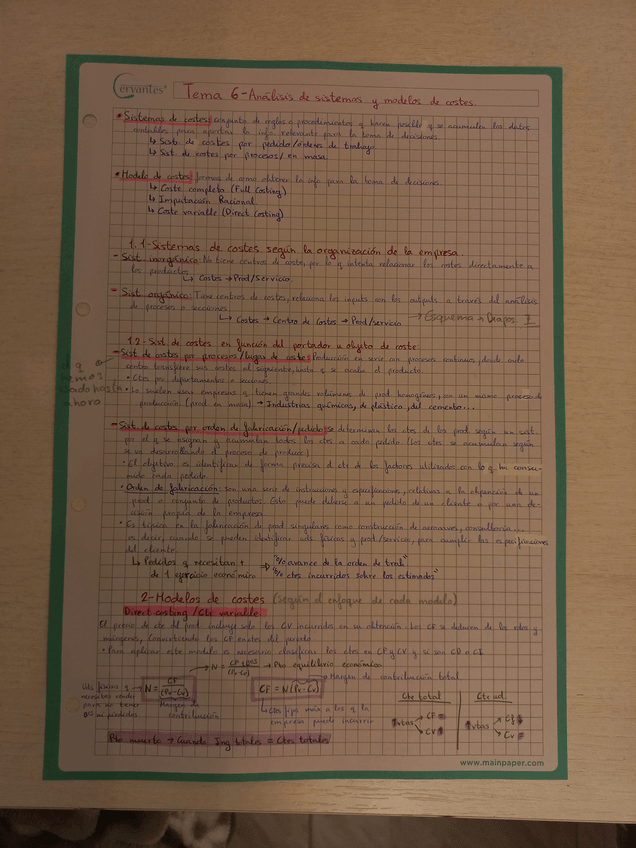 Cervantes
Tema 6-Análisis de sistemas y modelos de costes.
• Sistemas de costes: conjunto de reglas o procedimientos q hacen posible q se acumulen los datos
contables para aportar la info relevante para la toma de decisiones.
↳ Sist de costes por pedido/órdenes de trabajo
↳ Sist de costes por procesos/en masa.
• Modelo de costes: formas de cómo obtener la info para la toma de decisiones.
↳ Coste completo (Full Costing)
↳ Imputación Racional
↳ Coste variable (Direct Costing)
1.1-Sistemas de costes según la organización de la empresa.
- Sist. inorgánico: No tiene centros de costes, por lo q intenta relacionar los costes directamente a
los productos.
↳ Costes → Prod/Servicio.
- Sist. orgánico: Tiene centros de costes, relaciona los inputs con los outputs a través del análisis
de procesos o secciones.
↳ Costes → Centro de Costes → Prod/servicio
→ Esquema
1.2-Sist. de costes en función del portador u objeto de coste:
- Sist. de costes por procesos/lugar de costes: Producción en serie con procesos continuos, donde cada
centro transfiere sus costes al siguiente, hasta q se acaba el producto.
• Ctes por departamentos o secciones.
• Lo suelen usar empresas q tienen grandes volúmenes de prod. homogénea, con un mismo proceso de
producción (prod en masa) → Industrias químicas, de plástico, del cemento...
hemos
usado hasta
ahora
- Sist. de costes por orden de fabricación/pedido: se determinan los ctes de los prod según un sist.
por el q se asignan y acumulan todos los ctes a cada pedido (los ctes se acumulan según
se va desarrollando el proceso de producc.)
• El objetivo es identificar de forma precisa el cte de los factores utilizados con lo q ha consu-
mido cada pedido.
• Orden de fabricación: son una serie de instrucciones y especificaciones, relativas a la obtención de un
prod. o conjunto de productos. Esto puede deberse a un pedido de un cliente o por una de-
cisión propia de la empresa
• Es típica en la fabricación de prod. singulares como construcción de aeronaves, consultoría...
es decir, cuando se pueden identificar uds físicas y prod/servicios, para cumplir las especificaciones
del cliente.
↳ Pedidos q necesitan +
de 1 ejercicio económico
→ "% avance de la orden de trab"
"% ctes incurridos sobre los estimados"
2-Modelos de costes (según el enfoque de cada modelo)
Direct costing/Cte variable:
El precio de cte del prod incluye solo los CV incurridos en su obtención. Los CF se deducen de los rdos y
márgenes, convirtiendo los CF en ctes del periodo.
• Para aplicar este modelo es necesario clasificar los ctes en CF y CV y si son CD o CI.
→ Pto equilibrio económico
→ Margen de contribución total
Uds físicas q
necesitas vender
para no tener
Bº ni pérdidas
N = CF/(Pv-Cv)
Margen de
contribución
CF = N(Pv-Cv)
↳ Ctes fijos máx a los q la
empresa puede incurrir
Cte total
vtas
CF
CV
Cte ud.
vtas
Cf
Cv
Pto muerto → Cuando Ing totales = Ctes totales
www.mainpaper.com